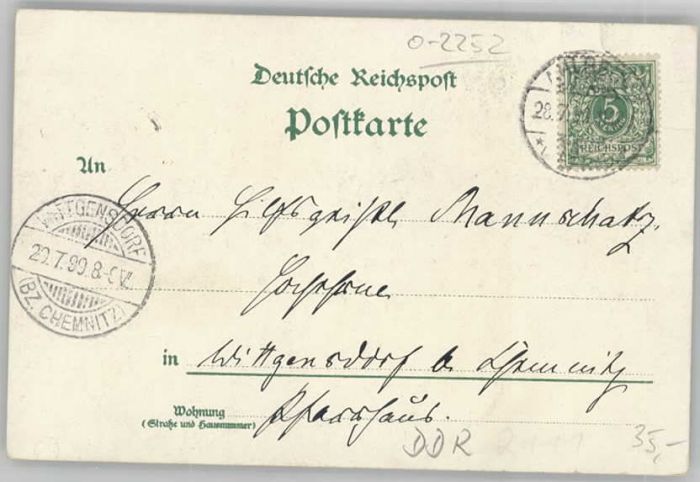 0-2252
Deutsche Reichspost
Postkarte
28.7.
5
REICHSPOST
An
Herrn Hilfsgeistl. Mannschatz.
WITTGENSDORF
29.7.99.8-9V.
(BZ. CHEMNITZ)
Hochehrw.
in Wittgensdorf b. Chemnitz
Wohnung
(Straße und Hausnummer)
Pfarrhaus.
DDR
35,-